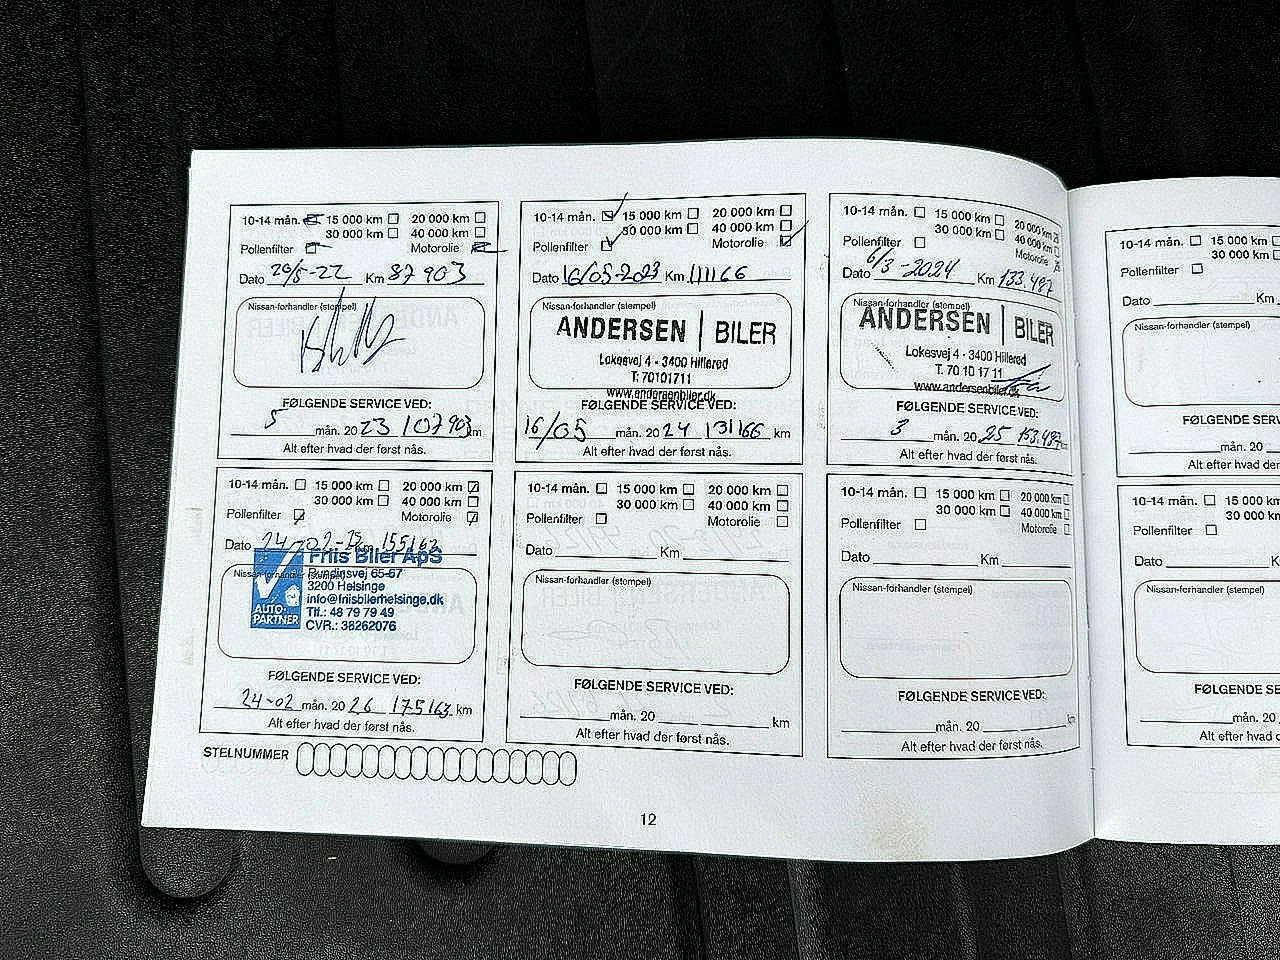 10-14 mån. 15 000 km 20 000 km
30 000 km 40 000 km
Pollenfilter Motorolie
Dato 20/5-22 Km 87 903
Nissan-forhandler (stempel)
FØLGENDE SERVICE VED:
5 mån. 2023 107903 km
Alt efter hvad der først nås.
10-14 mån. 15 000 km 20 000 km
30 000 km 40 000 km
Pollenfilter Motorolie
Dato 16/05-2023 Km 111166
Nissan-forhandler (stempel)
ANDERSEN | BILER
Lokesvej 4 - 3400 Hillerød
T: 70101711
www.andersenbiler.dk
FØLGENDE SERVICE VED:
16/05 mån. 2024 131166 km
Alt efter hvad der først nås.
10-14 mån. 15 000 km 20 000 km
30 000 km 40 000 km
Pollenfilter Motorolie
Dato 6/3-2024 Km 133.497
Nissan-forhandler (stempel)
ANDERSEN | BILER
Lokesvej 4 - 3400 Hillerød
T. 70 10 17 11
www.andersenbiler.dk
FØLGENDE SERVICE VED:
3 mån. 2025 153.497 km
Alt efter hvad der først nås.
10-14 mån. 15 000 km
30 000 km
Pollenfilter
Dato Km
Nissan-forhandler (stempel)
FØLGENDE SE
mån. 20
Alt efter hvad der
10-14 mån. 15 000 km 20 000 km
30 000 km 40 000 km
Pollenfilter Motorolie
Dato 24-02- Km 155163
Nissan-forhandler (stempel)
Friis Biler ApS
Rundinsvej 65-67
3200 Helsinge
info@friisbilerhelsinge.dk
Tlf.: 48 79 79 49
CVR.: 38262076
AUTO-
PARTNER
FØLGENDE SERVICE VED:
24-02 mån. 2026 175163 km
Alt efter hvad der først nås.
10-14 mån. 15 000 km 20 000 km
30 000 km 40 000 km
Pollenfilter Motorolie
Dato Km
Nissan-forhandler (stempel)
FØLGENDE SERVICE VED:
mån. 20 km
Alt efter hvad der først nås.
10-14 mån. 15 000 km 20 000 km
30 000 km 40 000 km
Pollenfilter Motorolie
Dato Km
Nissan-forhandler (stempel)
FØLGENDE SERVICE VED:
mån. 20 km
Alt efter hvad der først nås.
10-14 mån. 15 000 km
30 000 km
Pollenfilter
Dato K
Nissan-forhandler (stempel)
FØLGENDE SE
mån. 20
Alt efter hvad der
STELNUMMER
12